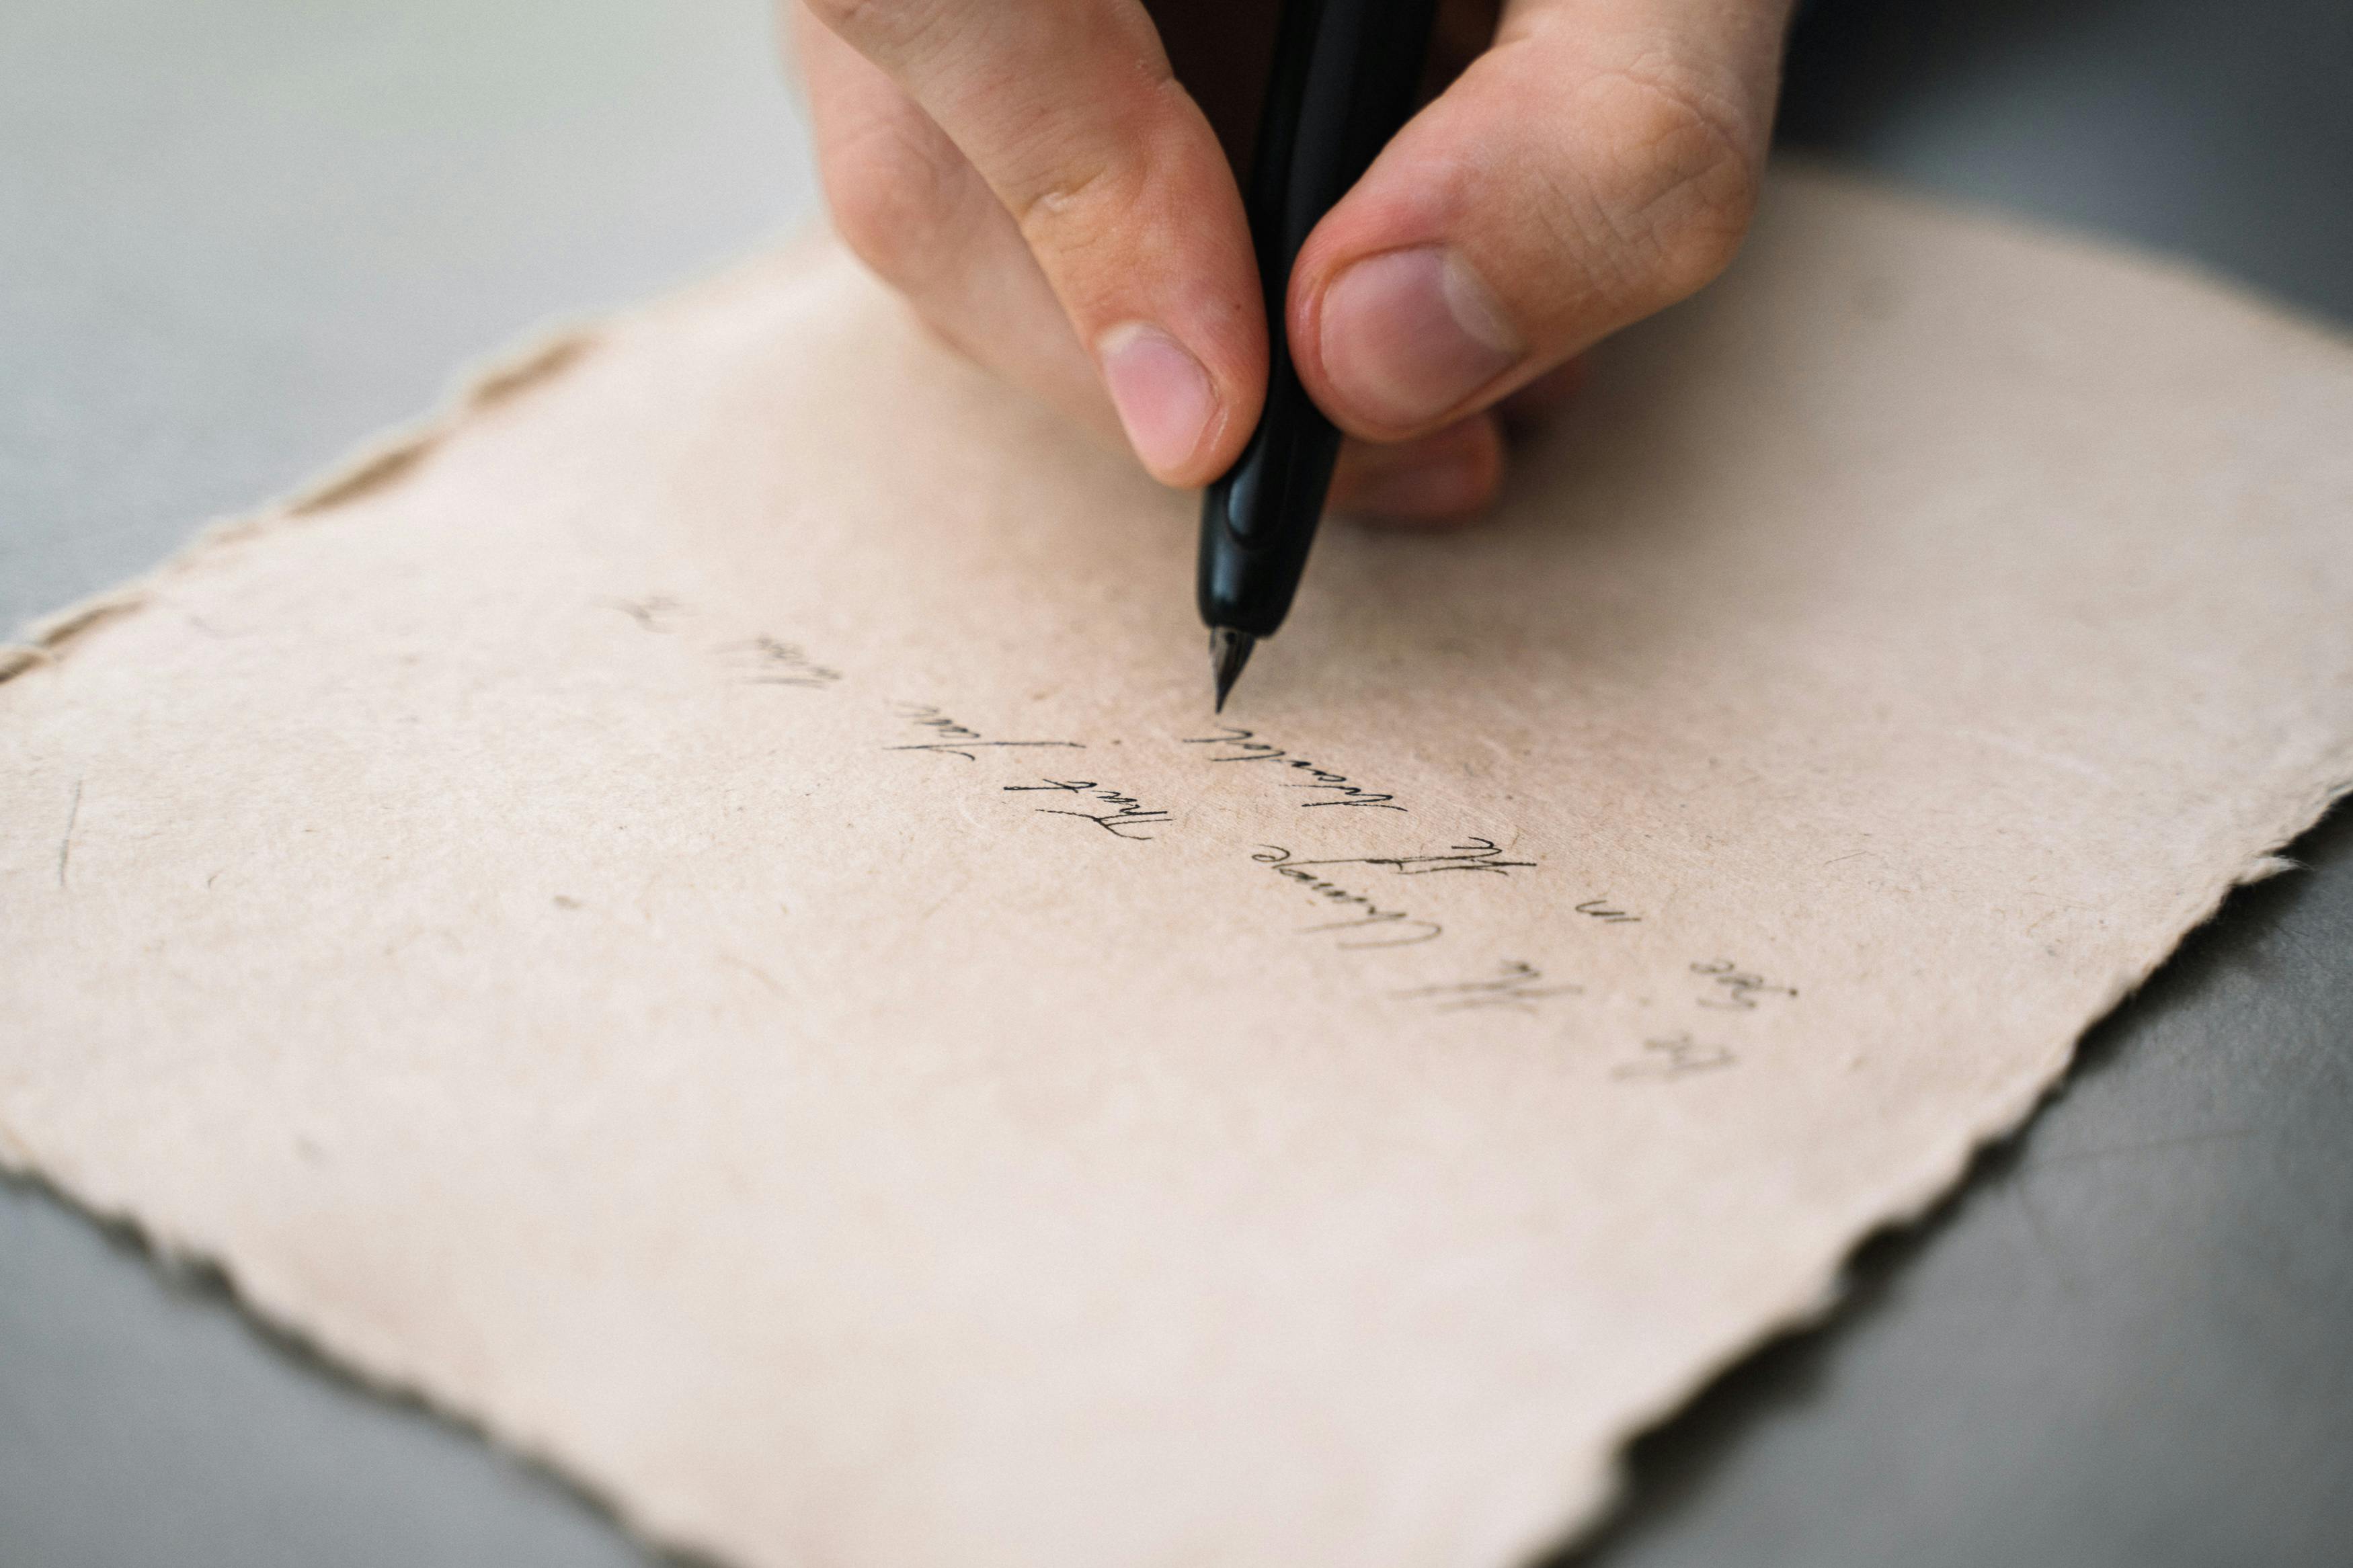 Be the Change That You Wish To
See in the World